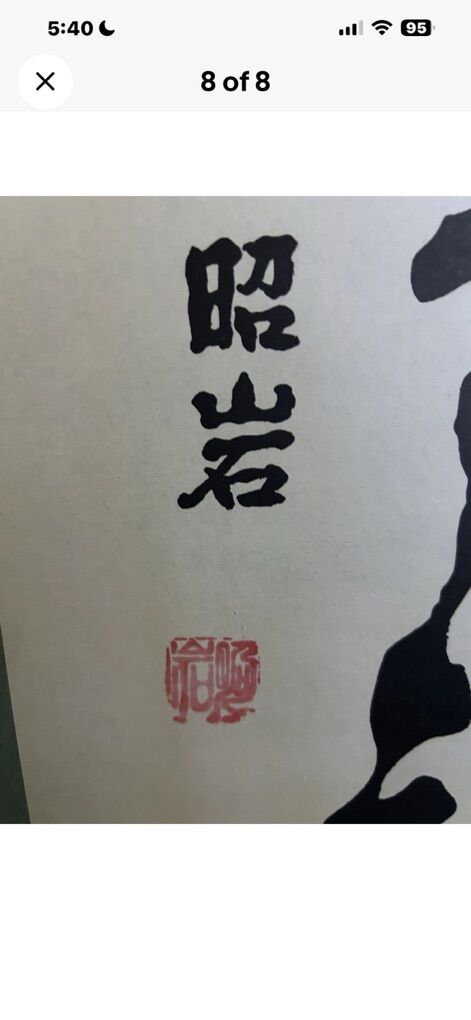 5:40
95
8 of 8
昭岩
昭岩